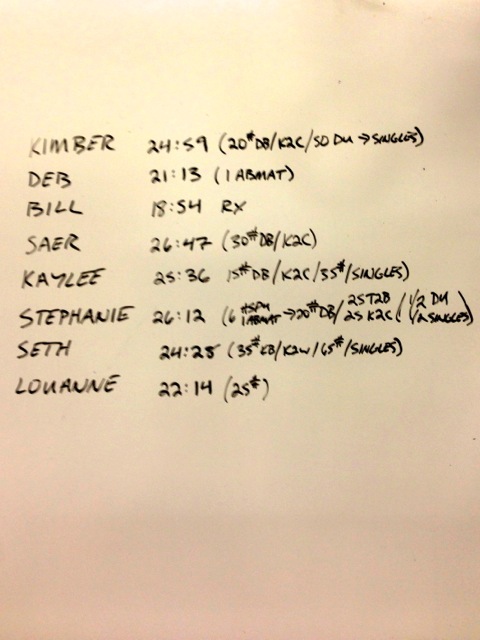 KIMBER 24:59 (20# DB/K2C/50 DU → SINGLES)
DEB 21:13 (1 ABMAT)
BILL 18:54 RX
SAER 26:47 (30# DB/K2C)
KAYLEE 25:36 15# DB/K2C/35#/SINGLES)
STEPHANIE 26:12 (6 HSPU 1ABMAT → 20# DB/ 25 T2B 25 K2C ( 1/2 DU 1/2 SINGLES)
SETH 24:28 (35# KB/K2W/65#/SINGLES)
LOUANNE 22:14 (25#)